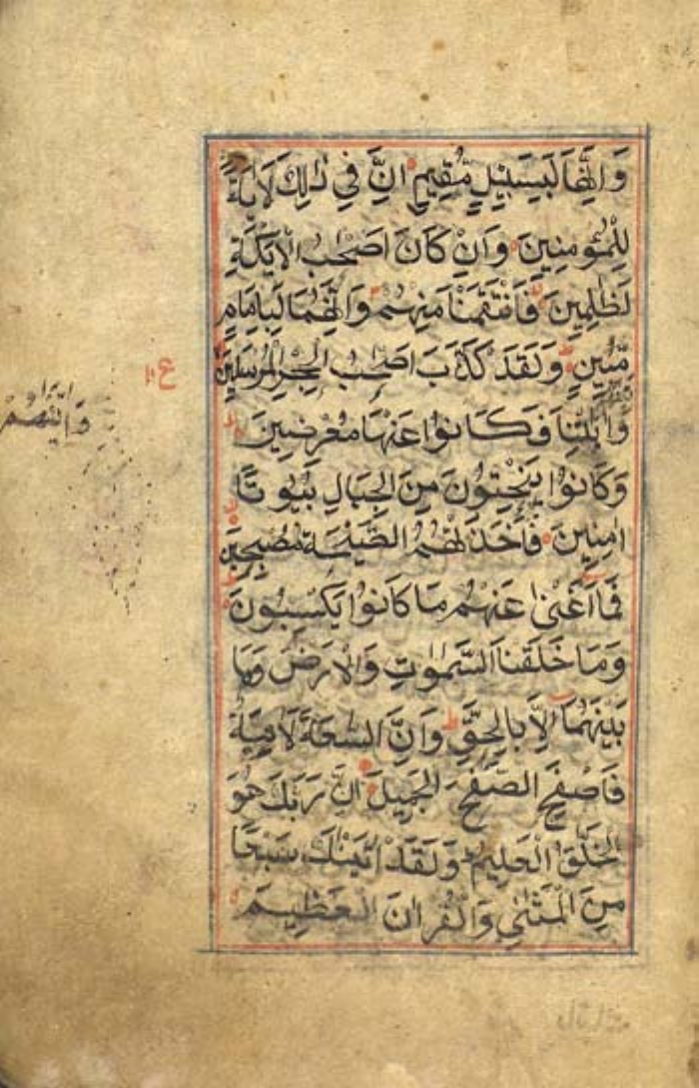 وَاِنَّهَا لَبِسَبِيْلٍ مُّقِيْمٍ اِنَّ فِي ذٰلِكَ لَاٰيَةً
لِلْمُؤْمِنِينَ وَاِنْ كَانَ اَصْحٰبُ الْاَيْكَةِ
لَظٰلِمِينَ فَانْتَقَمْنَا مِنْهُمْ وَاِنَّهُمَا لَبِاِمَامٍ
مُّبِينٍ وَلَقَدْ كَذَّبَ اَصْحٰبُ الْحِجْرِ الْمُرْسَلِيْنَ
ع
وَاٰتَيْنٰهُمْ اٰيٰتِنَا فَكَانُوْا عَنْهَا مُعْرِضِيْنَ
وَكَانُوْا يَنْحِتُوْنَ مِنَ الْجِبَالِ بُيُوْتًا
اٰمِنِيْنَ فَاَخَذَتْهُمُ الصَّيْحَةُ مُصْبِحِيْنَ
فَمَا اَغْنٰى عَنْهُمْ مَا كَانُوْا يَكْسِبُوْنَ
وَمَا خَلَقْنَا السَّمٰوٰتِ وَالْاَرْضَ وَمَا
بَيْنَهُمَا اِلَّا بِالْحَقِّ وَاِنَّ السَّعَةَ لَاٰتِيَةٌ
فَاصْفَحِ الصَّفْحَ الْجَمِيْلَ اِنَّ رَبَّكَ هُوَ
الْخَلّٰقُ الْعَلِيْمُ وَلَقَدْ اٰتَيْنٰكَ سَبْعًا
مِنَ الْمَثَانِي وَالْقُرْاٰنَ الْعَظِيْمَ